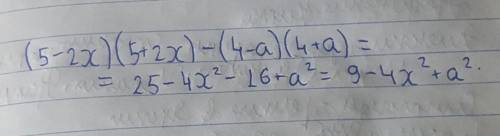 (5-2x)(5+2x)-(4-a)(4+a)=
= 25-4x²-16+a²= 9-4x²+a².